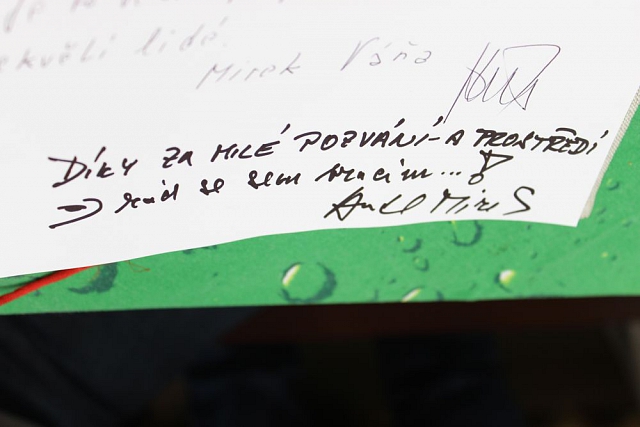 je
skvělí lidé.
Mirek Váňa
DÍKY ZA MILÉ POZVÁNÍ - A PROSTŘEDÍ
→ rád se sem vracím...!